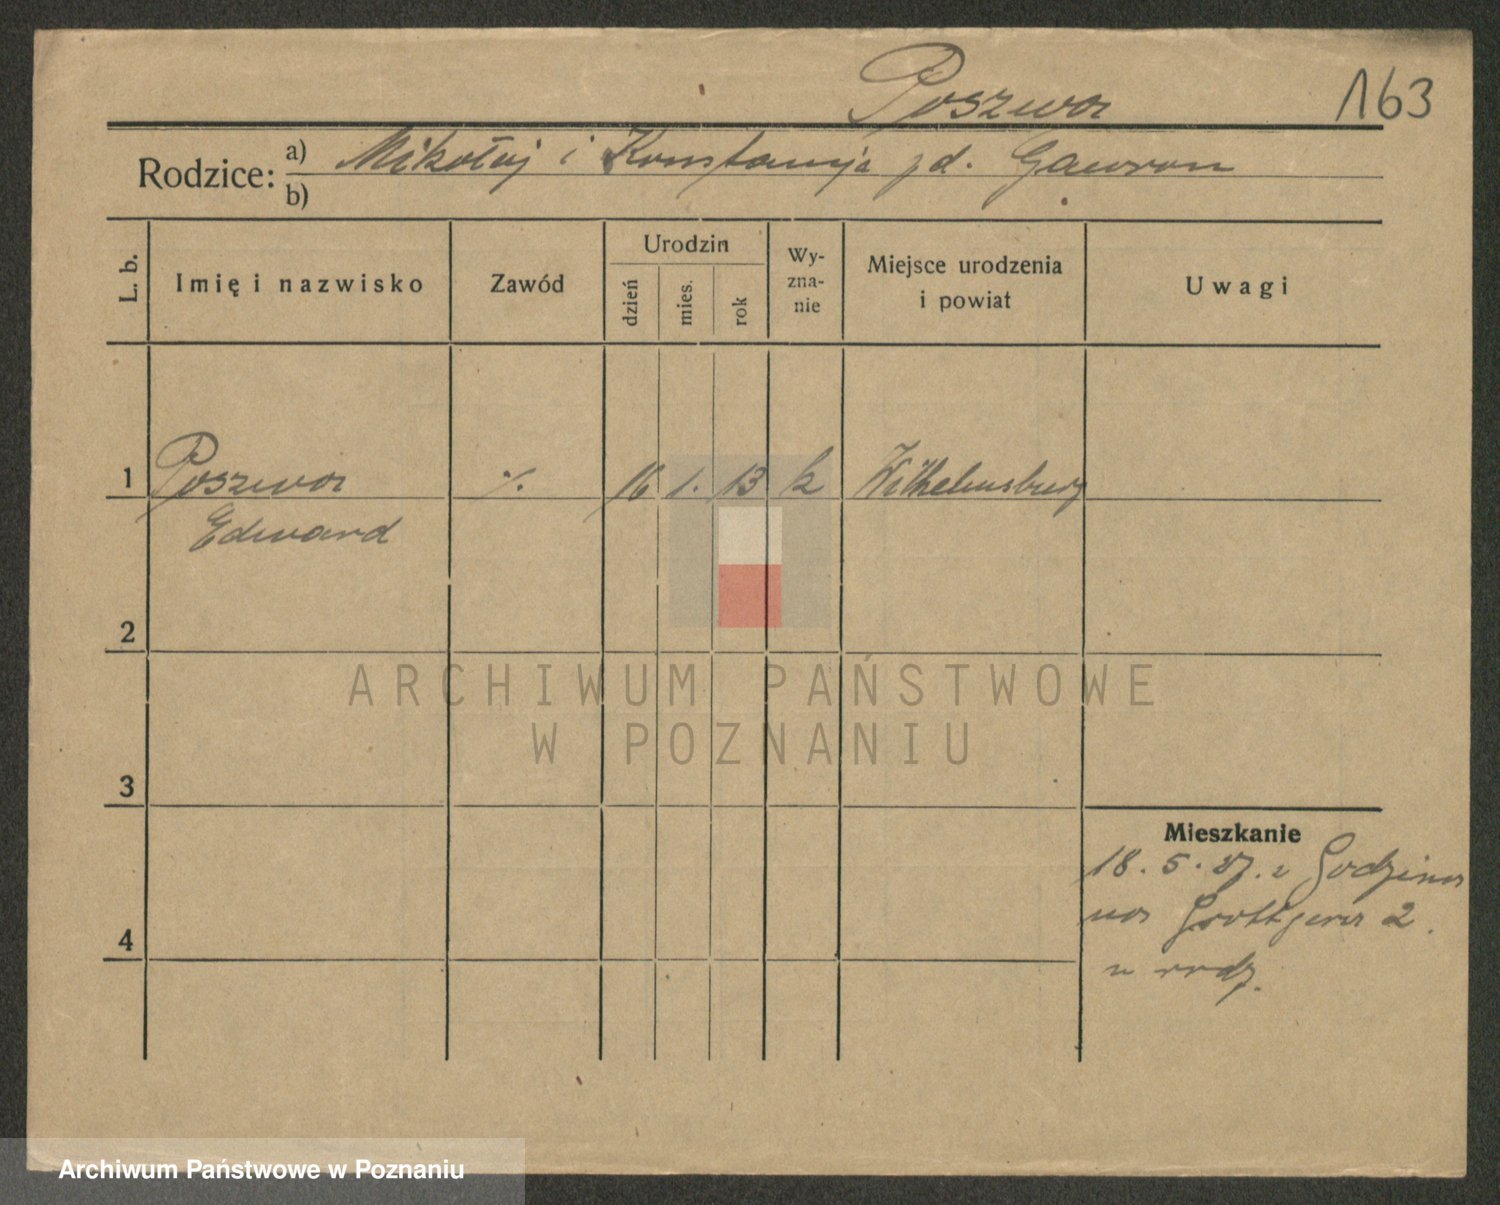 Poszwa
163
Rodzice:
a) Mikołaj i Konstancja zd. Gawron
b)
L. b.
Imię i nazwisko
Zawód
Urodzin
dzień
mies.
rok
Wy-
zna-
nie
Miejsce urodzenia
i powiat
Uwagi
1 Poszwa ·/. 16 1. 13 k Wilhelmsburg
Edward
2
3
4
Mieszkanie
18. 5. 27. z
na Grottgera 2.
u rodz.
ARCHIWUM PAŃSTWOWE
W POZNANIU
Archiwum Państwowe w Poznaniu